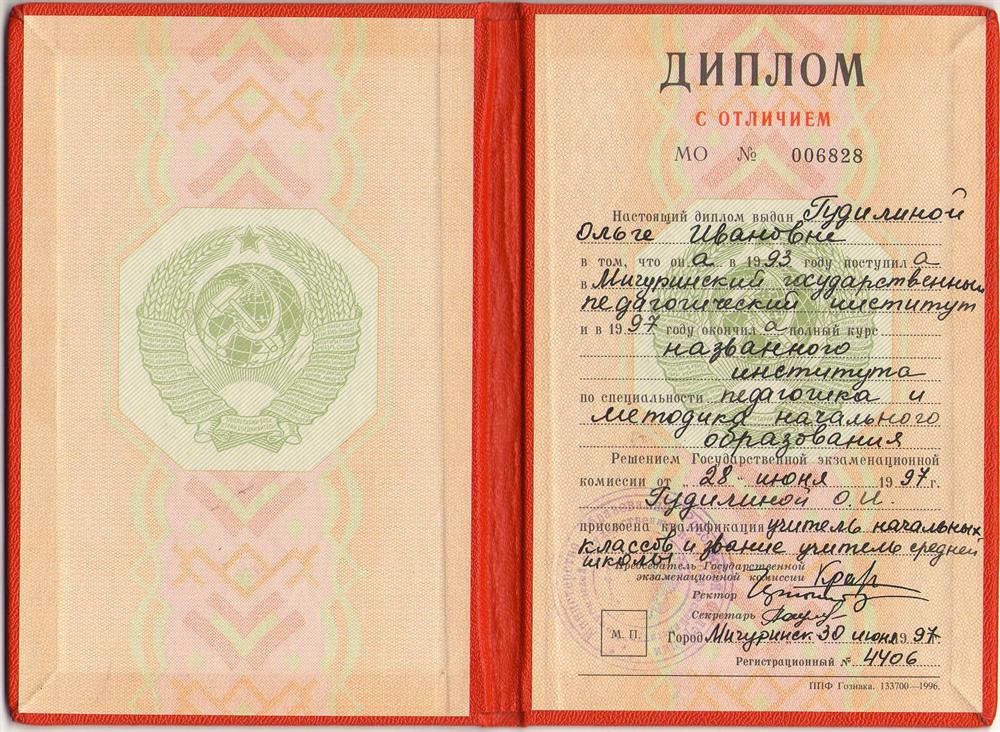 ДИПЛОМ
С ОТЛИЧИЕМ
МО № 006828
Настоящий диплом выдан Гудилиной
Ольге Ивановне
в том, что он а в 1993 году поступил а
в Мичуринский государственный
педагогический институт
и в 1997 году окончил а полный курс
названного
института
по специальности педагогика и
методика начального
образования
Решением Государственной экзаменационной
комиссии от „28“ июня 1997 г.
Гудилиной О.И.
присвоена квалификация учитель начальных
классов и звание учитель средней
школы
Председатель Государственной
экзаменационной комиссии
Ректор
Секретарь
М. П.
Город Мичуринск 30 июня 1997
Регистрационный № 4406
ППФ Гознака. 133700—1996.